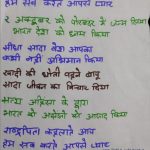 हम सब करते आपसे प्यार
२ अक्टूबर को पोरबंदर में जन्म लिया
भारत देश को धन्य किया
सीधा सादा वेश आपका
कभी नहीं अभिमान किया
खादी की धोती पहने बापू
सादा जीवन का विचार दिया
सत्य अहिंसा के द्वारा
भारत को अंग्रेजों से आजाद किया
राष्ट्रपिता कहलाते आप
हम सब करते आपसे प्यार